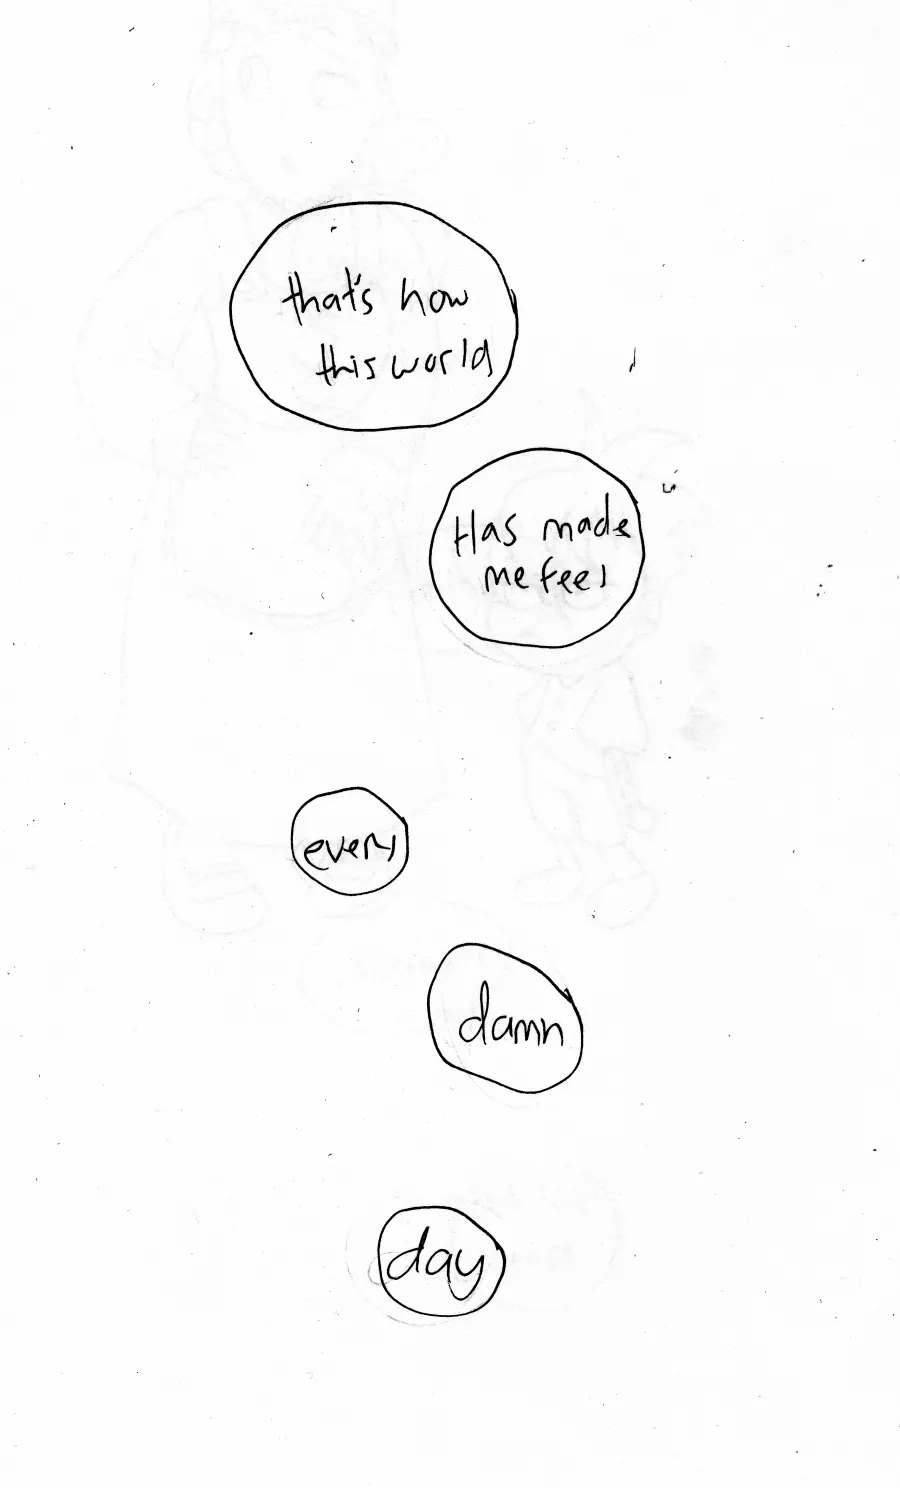 that's how
this world
Has made
me feel
every
damn
day